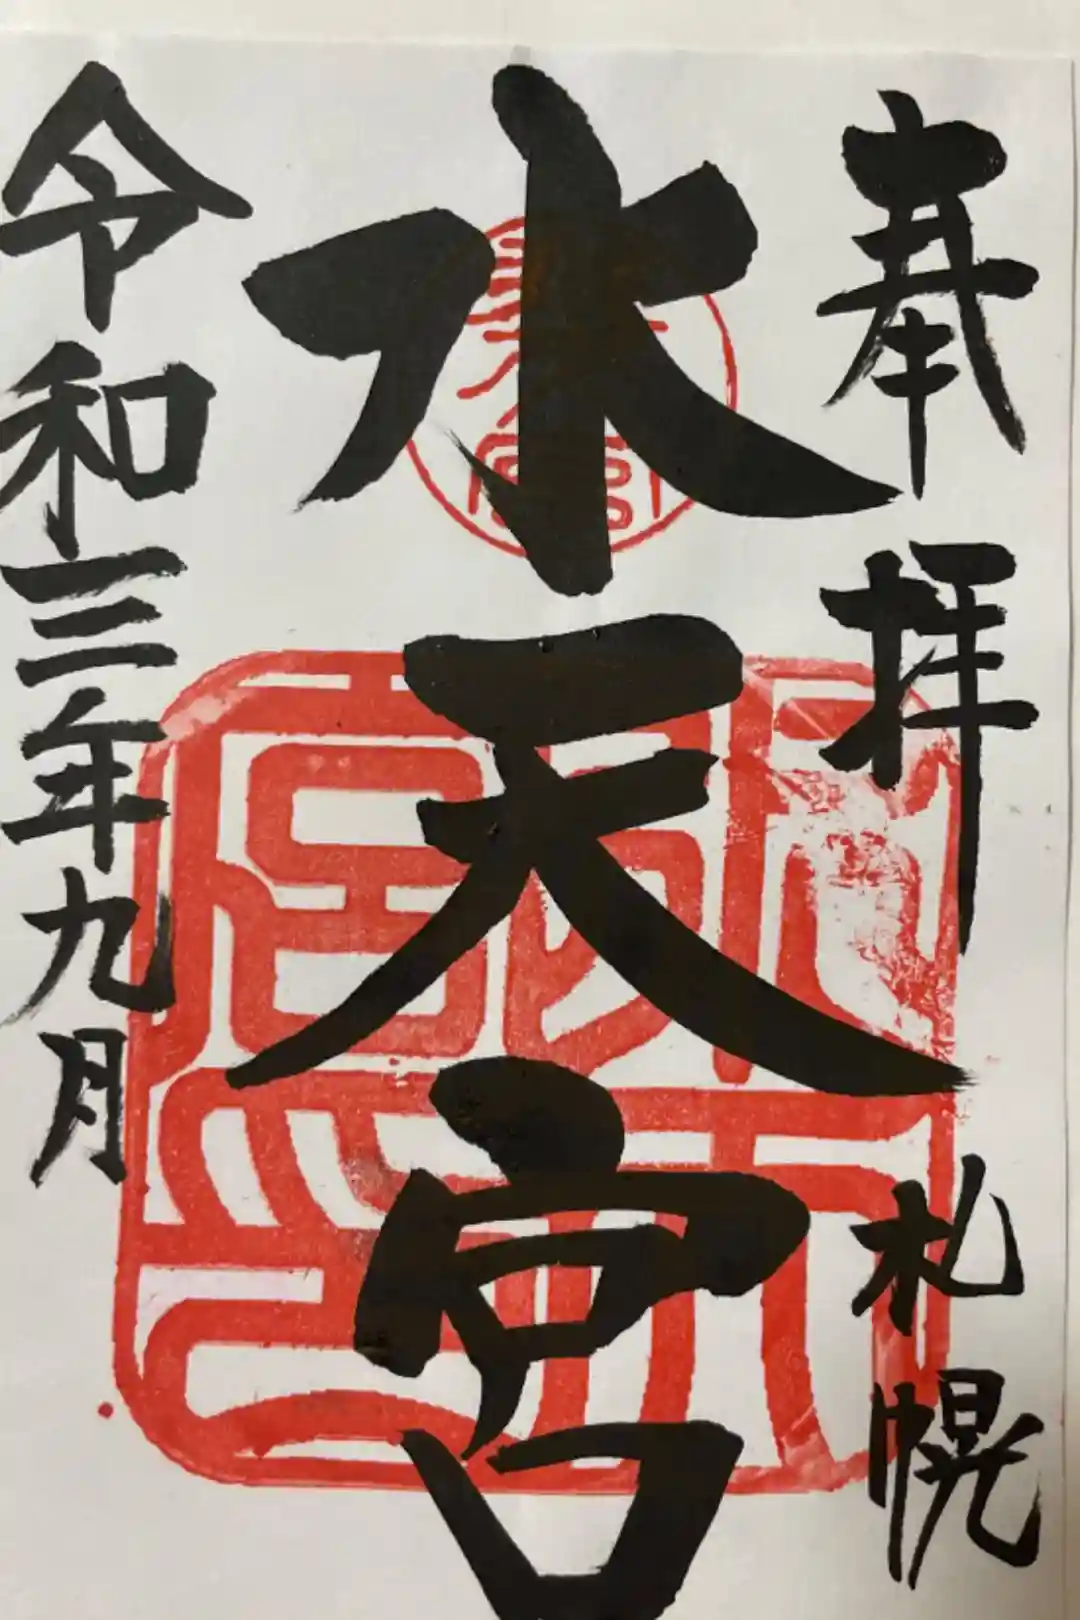 奉拝
札幌
水天宮
令和三年九月